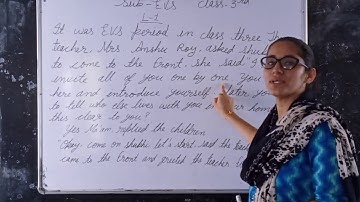 Sub-EVS class-3rd
L-1
It was EVS period in class three Th
teacher, Mrs Anshu Roy, asked
to come to the front. She said "I
invite all of you one by one. You
here and introduce yourself. later yo
to tell who else lives with you in
this clear to you?
Yes Ma'am replied the children
Okay, come on let's start, said the
came to the front and greeted the teacher